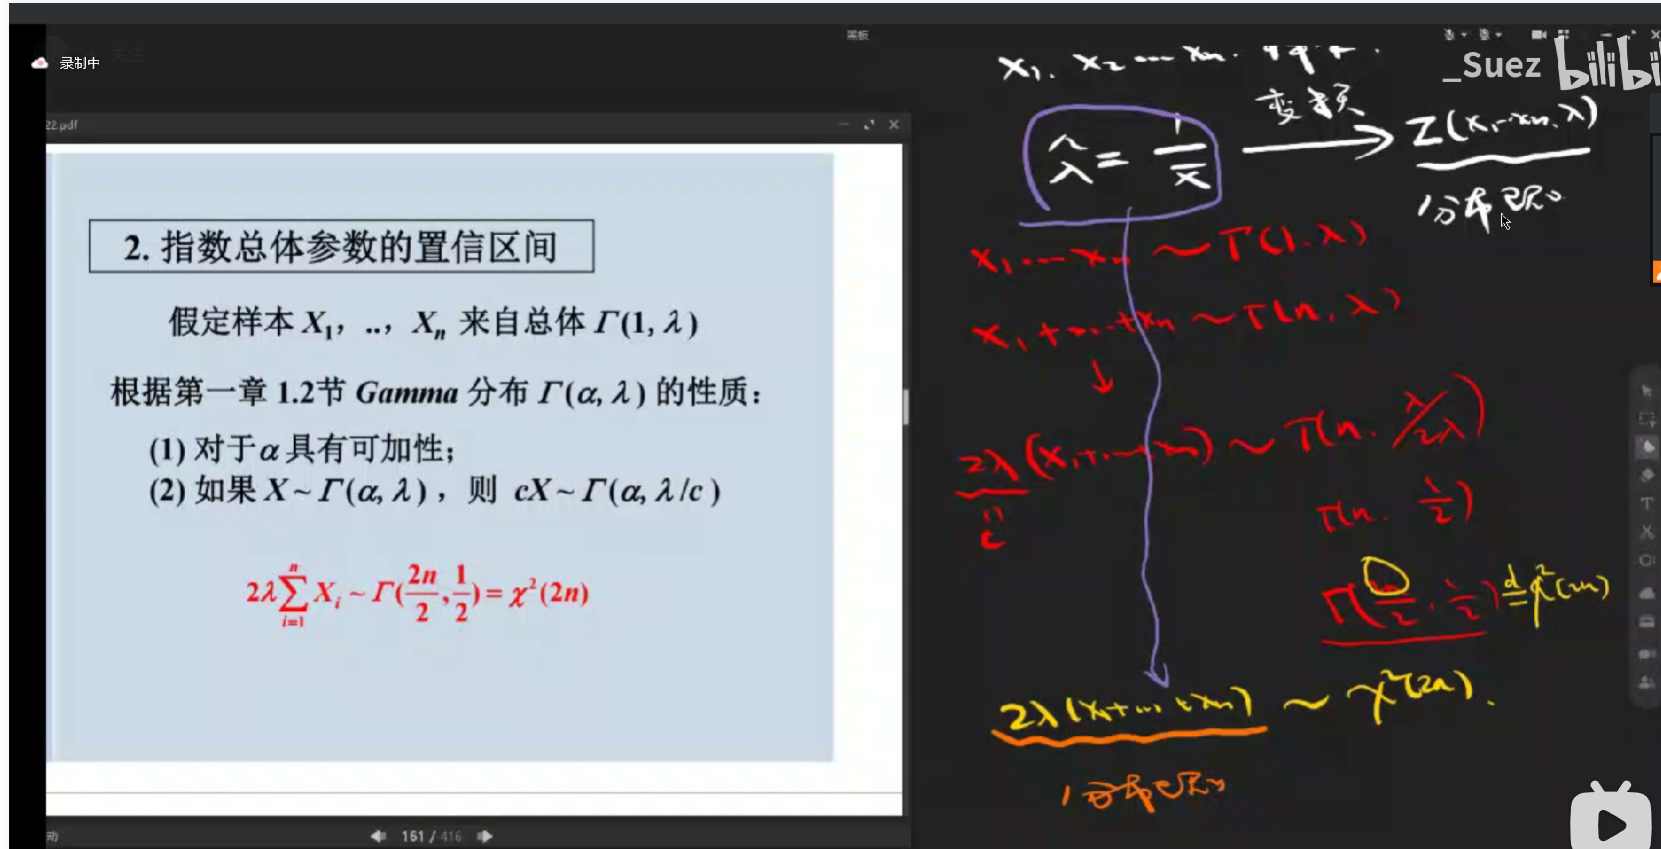 黑板
关注
录制中
_Suez bilibili
22.pdf
2. 指数总体参数的置信区间
假定样本 X₁, .., Xₙ 来自总体 Γ(1, λ)
根据第一章 1.2节 Gamma 分布 Γ(α, λ) 的性质：
(1) 对于α具有可加性；
(2) 如果 X ~ Γ(α, λ) ，则 cX ~ Γ(α, λ/c )
2λ∑ᵢ₌₁ⁿ Xᵢ ~ Γ(2n/2, 1/2) = χ²(2n)
161 / 416
x₁, x₂ --- xₙ.
λ̂ = 1/x̄
变换
Z(x₁--xₙ, λ)
分布已知
x₁ --- xₙ ~ Γ(1, λ)
x₁ + --- + xₙ ~ Γ(n, λ)
↓
2λ(x₁+ --- xₙ) ~ Γ(n, λ/2λ)
c
Γ(n, 1/2)
Γ(2n/2, 1/2) =ᵈ χ²(2n)
2λ(x₁+ --- + xₙ) ~ χ²(2n).
分布已知